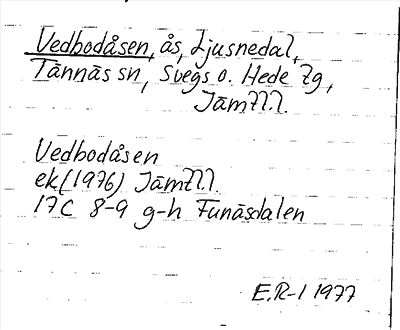 Vedbodåsen, ås, Ljusnedal,
Tännäs sn, Svegs o. Hede tg,
Jämtl.l.
Vedbodåsen
ek(1976) Jämtl.l.
17C 8-9 g-h Funäsdalen
E.R-l 1977